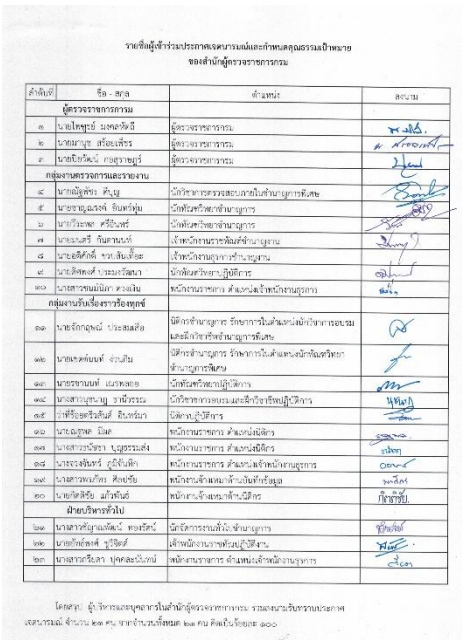 รายชื่อผู้เข้าร่วมประกาศเจตนารมณ์และกำหนดคุณธรรมเป้าหมาย
ของสำนักผู้ตรวจราชการกรม
ลำดับที่ ชื่อ - สกุล ตำแหน่ง ลงนาม
ผู้ตรวจราชการกรม
๑ นายไพฑูรย์ มงคลหัตถี ผู้ตรวจราชการกรม
๒ นายมานุช สร้อยเพ็ชร ผู้ตรวจราชการกรม
๓ นายปิยวัฒน์ ผู้ตรวจราชการกรม
กลุ่มงานตรวจการและรายงาน
๔ นายณัฐพัชร ดีบุญ นักวิชาการตรวจสอบภายในชำนาญการพิเศษ
๕ นายชาญณรงค์ อินทร์ทุ่ม นักทัณฑวิทยาชำนาญการ
๖ นายวีระพล ศรีอินทร์ นักทัณฑวิทยาชำนาญการ
๗ นายมนตรี กันตานนท์ เจ้าพนักงานราชทัณฑ์ชำนาญงาน
๘ นายอดิศักดิ์ เจ้าพนักงานธุรการชำนาญงาน
๙ นายดิศพงศ์ ประมงวัฒนา นักทัณฑวิทยาปฏิบัติการ
๑๐ นางสาวชนม์นิภา ดวงเงิน พนักงานราชการ ตำแหน่งเจ้าพนักงานธุรการ
กลุ่มงานรับเรื่องราวร้องทุกข์
๑๑ นายจักกฤษณ์ ประสมเสือ นิติกรชำนาญการ รักษาการในตำแหน่งนักวิชาการอบรม
และฝึกวิชาชีพชำนาญการพิเศษ
๑๒ นายเชตต์นนท์ ง่วนกิม นิติกรชำนาญการ รักษาการในตำแหน่งนักทัณฑวิทยา
ชำนาญการพิเศษ
๑๓ นายรชานนท์ เณรพลอย นักทัณฑวิทยาปฏิบัติการ
๑๔ นางสาวนุชนาฎ ธานีวรรณ นักวิชาการอบรมและฝึกวิชาชีพปฏิบัติการ
๑๕ ว่าที่ร้อยตรีวสันต์ อินทร์มา นิติกรปฏิบัติการ
๑๖ นายณฐพล มีผล พนักงานราชการ ตำแหน่งนิติกร
๑๗ นางสาวธนัชชา บุญธรรมส่ง พนักงานราชการ ตำแหน่งนิติกร
๑๘ นางดวงจันทร์ ภูมิจันทึก พนักงานราชการ ตำแหน่งเจ้าพนักงานธุรการ
๑๙ นางสาวพรภัทร ศิลปชัย พนักงานจ้างเหมาด้านบันทึกข้อมูล
๒๐ นายกิตติชัย แก้วพันธ์ พนักงานจ้างเหมาด้านนิติกร กิตติชัย.
ฝ่ายบริหารทั่วไป
๒๑ นางสาวชัญาณพัฒน์ ทองรัตน์ นักจัดการงานทั่วไปชำนาญการ
๒๒ ชูวิจิตต์ เจ้าพนักงานราชทัณฑ์ปฏิบัติงาน
๒๓ นางสาวกรียดา บุคคละนันทน์ พนักงานราชการ ตำแหน่งเจ้าพนักงานธุรการ
โดยสรุป ผู้บริหารและบุคลากรในสำนักผู้ตรวจราชการกรม ร่วมลงนามรับทราบประกาศ
เจตนารมณ์ จำนวน ๒๓ คน จากจำนวนทั้งหมด ๒๓ คน คิดเป็นร้อยละ ๑๐๐